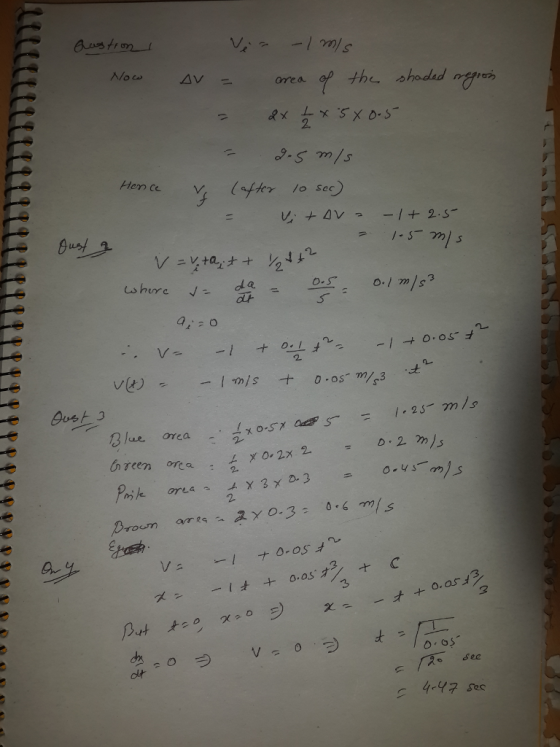 Question 1 Vi = -1 m/s
Now ΔV = area of the shaded region
= 2 × 1/2 × 5 × 0.5
= 2.5 m/s
Hence Vf (after 10 sec)
= Vi + ΔV = -1 + 2.5
= 1.5 m/s
Quest 2
V = vi + ai t + 1/2 J t²
where J = da/dt = 0.5/5 = 0.1 m/s³
ai = 0
∴ V = -1 + 0.1/2 t² = -1 + 0.05 t²
V(t) = -1 m/s + 0.05 m/s³ · t²
Quest 3
Blue area = 1/2 × 0.5 × 5 = 1.25 m/s
Green area = 1/2 × 0.2 × 2 = 0.2 m/s
Pink area = 1/2 × 3 × 0.3 = 0.45 m/s
Brown area = 2 × 0.3 = 0.6 m/s
Qn 4 V = -1 + 0.05 t²
x = -1t + 0.05 t³/3 + C
But t=0, x=0 ⇒ x = -t + 0.05 t³/3
dx/dt = 0 ⇒ V = 0 ⇒ t = √(1/0.05)
= √20 sec
= 4.47 sec